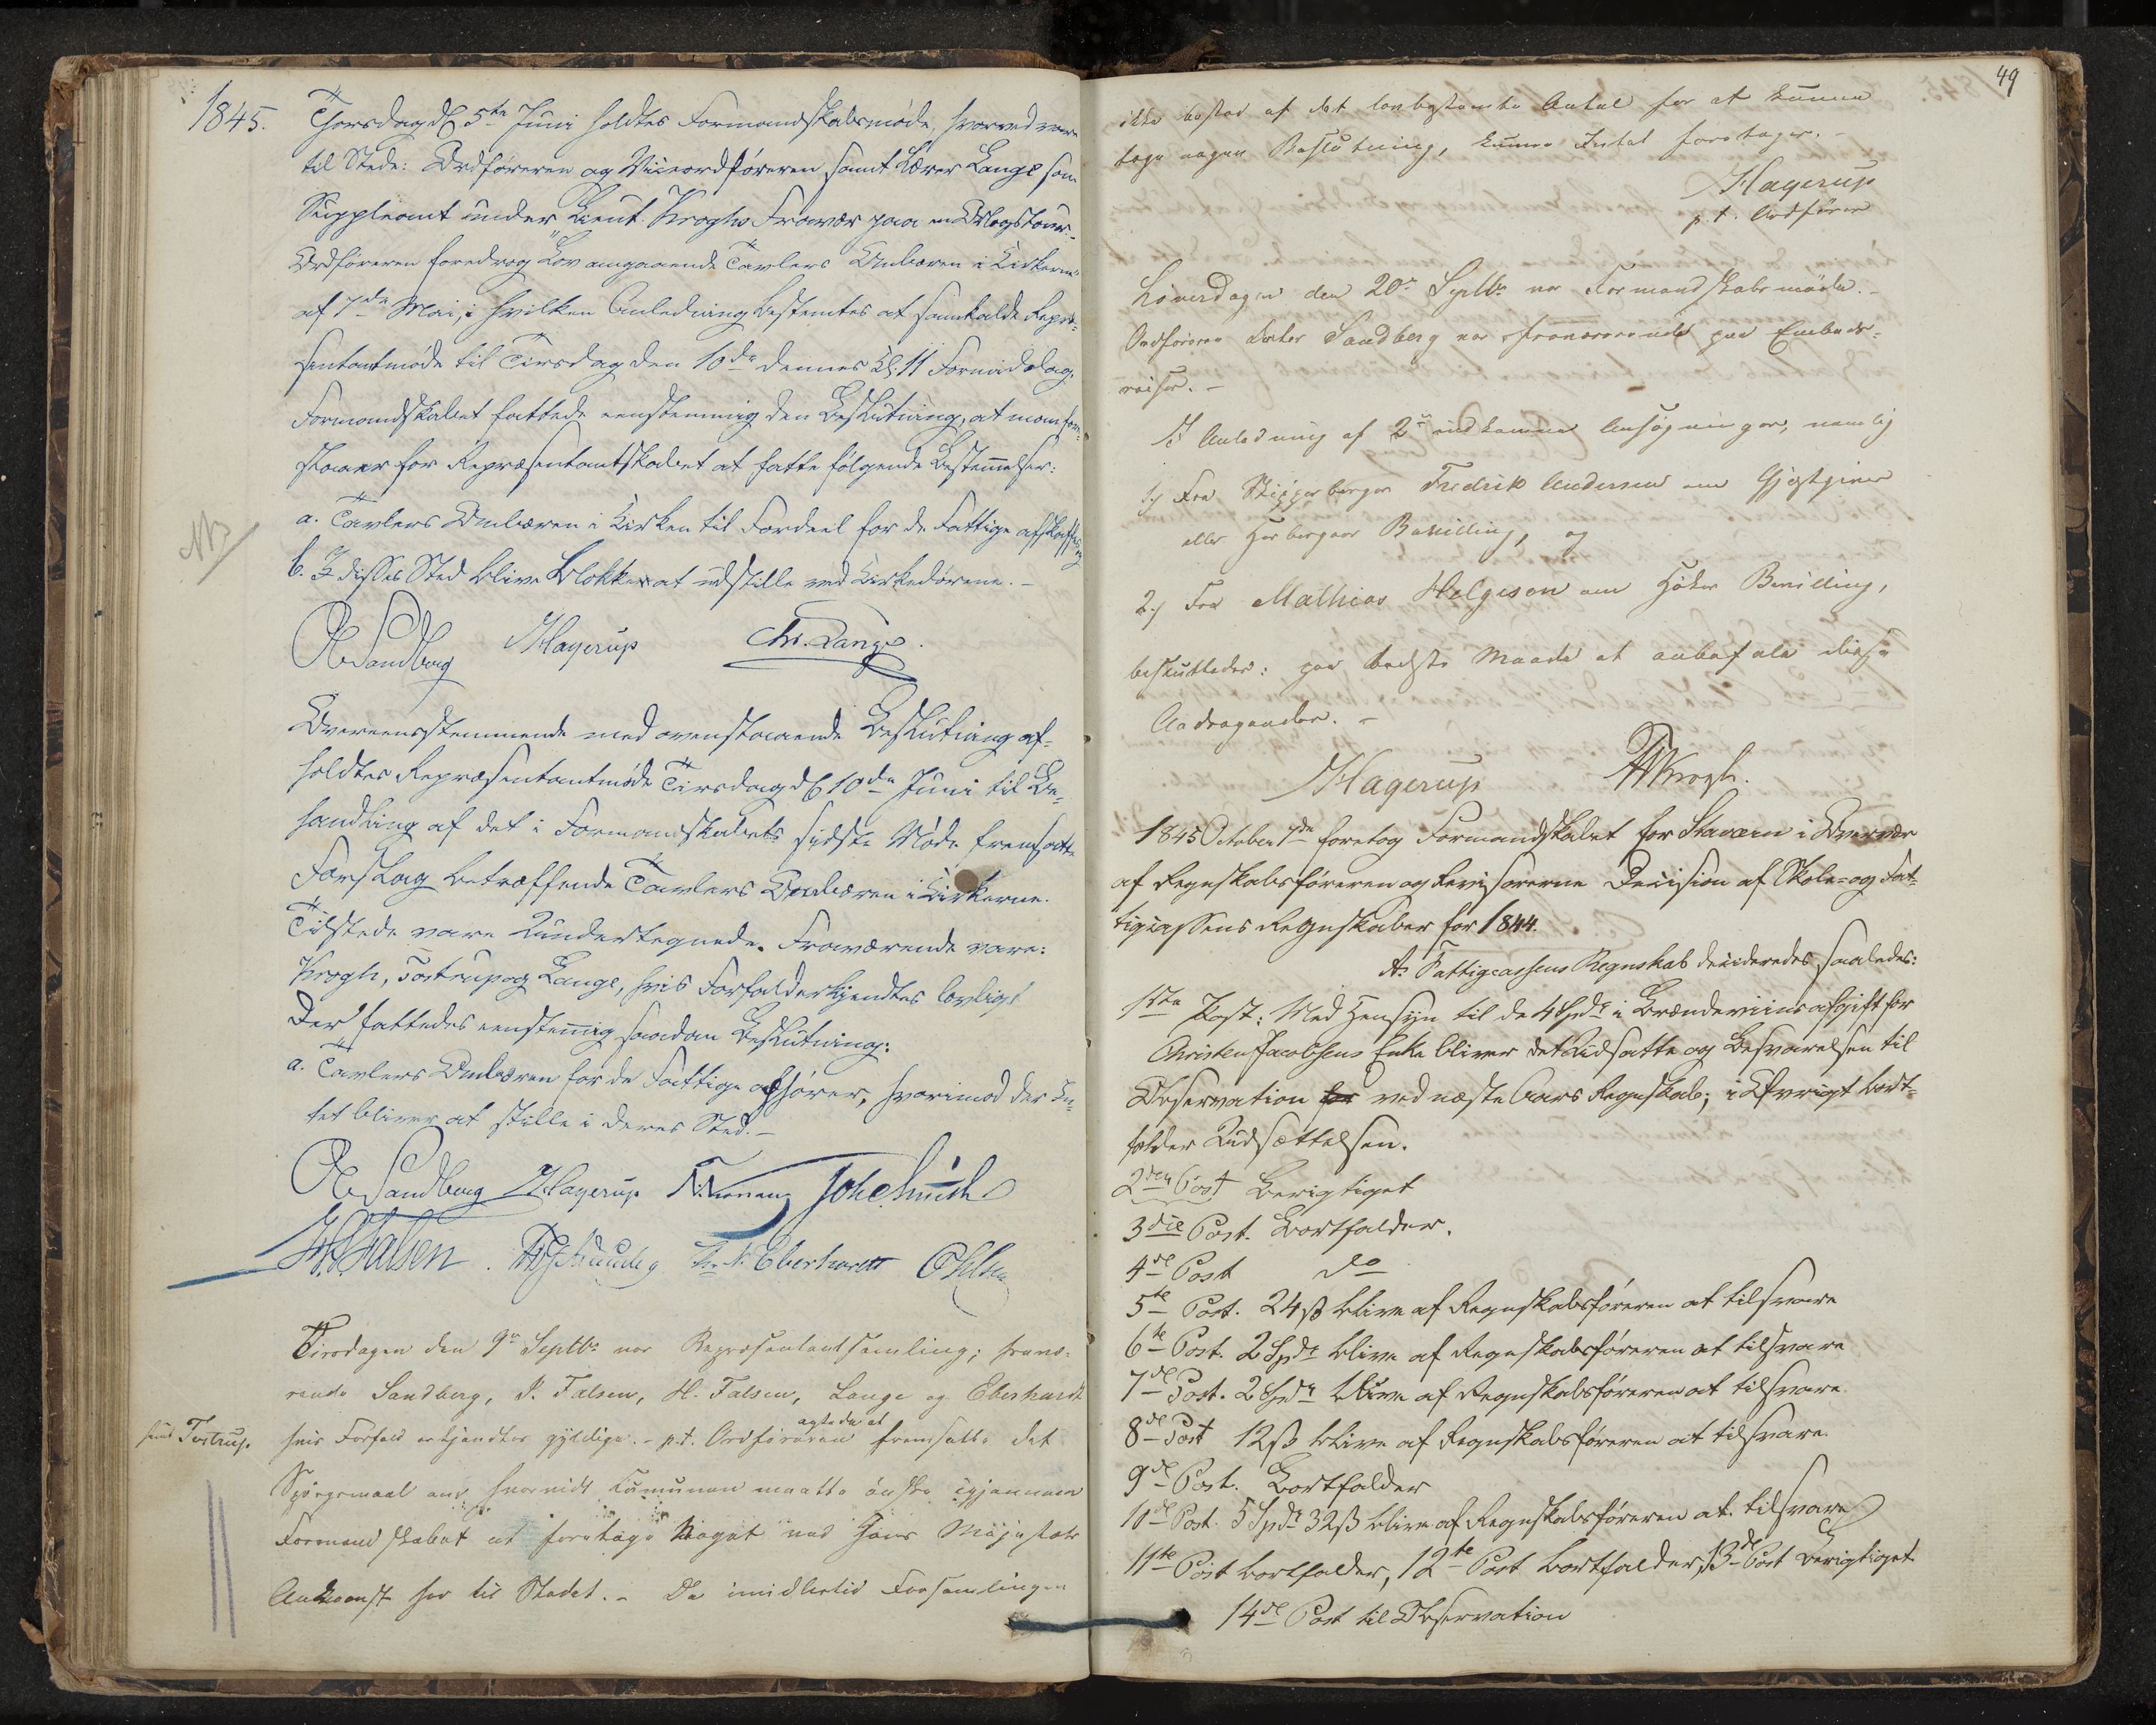 1845.
Thorsdag d. 5te Juni holdtes Formandskabsmøde, hvorved vare
til Stede: Ordføreren og Viceordføreren samt Lærer Lange som
Suppleant under Lieut. Kroghs Fravær paa en Orlogstour.
Ordføreren foredrog "Lov angaaende Tavlers Ombæren i Kirkerne"
af 7de Mai, i hvilken Anledning bestemtes at samkalde Repræ-
sentantmøde til Tirsdag den 10de dennes Kl. 11 Formiddag.
Formandskabet fattede eenstemmig den Beslutning, at man fore-
slaaer for Repræsentantskabet at fatte følgende Bestemmelser:
a. Tavlers Ombæren i Kirken til Fordeel for de Fattige afskaffes og
NB
b. I disses Sted blive Blokker at udstille ved Kirkedørene. –
Ole Sandberg Hagerup Chr. Lange.
Overeensstemmende med ovenstaaende Beslutning af-
holdtes Repræsentantmøde Tirsdag d. 10de Juni til Be-
handling af det i Formandskabets sidste Møde fremsatte
Forslag betræffende Tavlers Ombæren i Kirkerne.
Tilstede vare Undertegnede. Fraværende vare:
Krogh, Tostrup og Lange, hvis Forfald erkjendtes lovligt
Der fattedes eenstemmig saadan Beslutning:
a. Tavlers Ombæren for de Fattige ophører, hvorimod der In-
tet bliver at stille i deres Sted. –
Ole Sandberg Hagerup
Falsen Eberhardt
Tirsdagen den 9de Septbr var Repræsentantsamling; fravæ-
rende Sandberg, J. Falsen, H. Falsen, Lange og Eberhardt
samt Tostrup.
hvis Forfald erkjendtes gyldige. – p.t. Ordføreren agtede at fremsatte det
Spørgsmaal om hvorvidt Kommunen maatte ønske igjennem
Formandskabet at foretage Noget ved Hans Majestæts
Ankomst her til Stedet. – Da imidlertid Forsamlingen
49
ikke bestod af det lovbestemte Antal for at kunne
tage nogen Beslutning, kunne Intet foretages. –
Hagerup
p.t. Ordfører
Løverdagen den 20de Septbr var Formandskabsmøde. –
Ordføreren Doctor Sandberg var fraværende paa Embeds-
reiser. –
I Anledning af 2de indkomne Ansøgninger, nemlig
1.) Fra Skipperborger Fredrik Andersen om Gjestgiver
eller Herbergeer Bevilling, og
2.) Fra Mathias Helgesen om Høker Bevilling,
besluttedes: paa bedste Maade at anbefale disse
Andragender. –
Hagerup Krogh.
1845 October 7de foretog Formandskabet for Staværn i Overvær
af Regnskabsføreren og Revisorerne Decision af Skole- og Fat-
tigcassens Regnskaber for 1844.
A. Fattigcassens Regnskab decideredes saaledes:
1ste Post: Med Hensyn til de 4 Spd. i Brændeviinsafgift for
Christen Jacobsens Enke bliver det Udsatte og Besvarelsen til
Observation for ved næste Aars Regnskab; i Øvrigt bort-
falder Udsættelsen.
2den Post Berigtiget
3die Post. Bortfalder.
4de Post do
5te Post. 24 ß blive af Regnskabsføreren at tilsvare
6te Post. 2 Spd. blive af Regnskabsføreren at tilsvare
7de Post. 2 Spd. blive af Regnskabsføreren at tilsvare.
8de Post 12 ß blive af Regnskabsføreren at tilsvare.
9de Post. Bortfalder
10de Post. 5 Spd. 32 ß blive af Regnskabsføreren at tilsvare
11te Post bortfalder, 12te Post bortfalder, 13de Post Berigtiget
14de Post til Observation